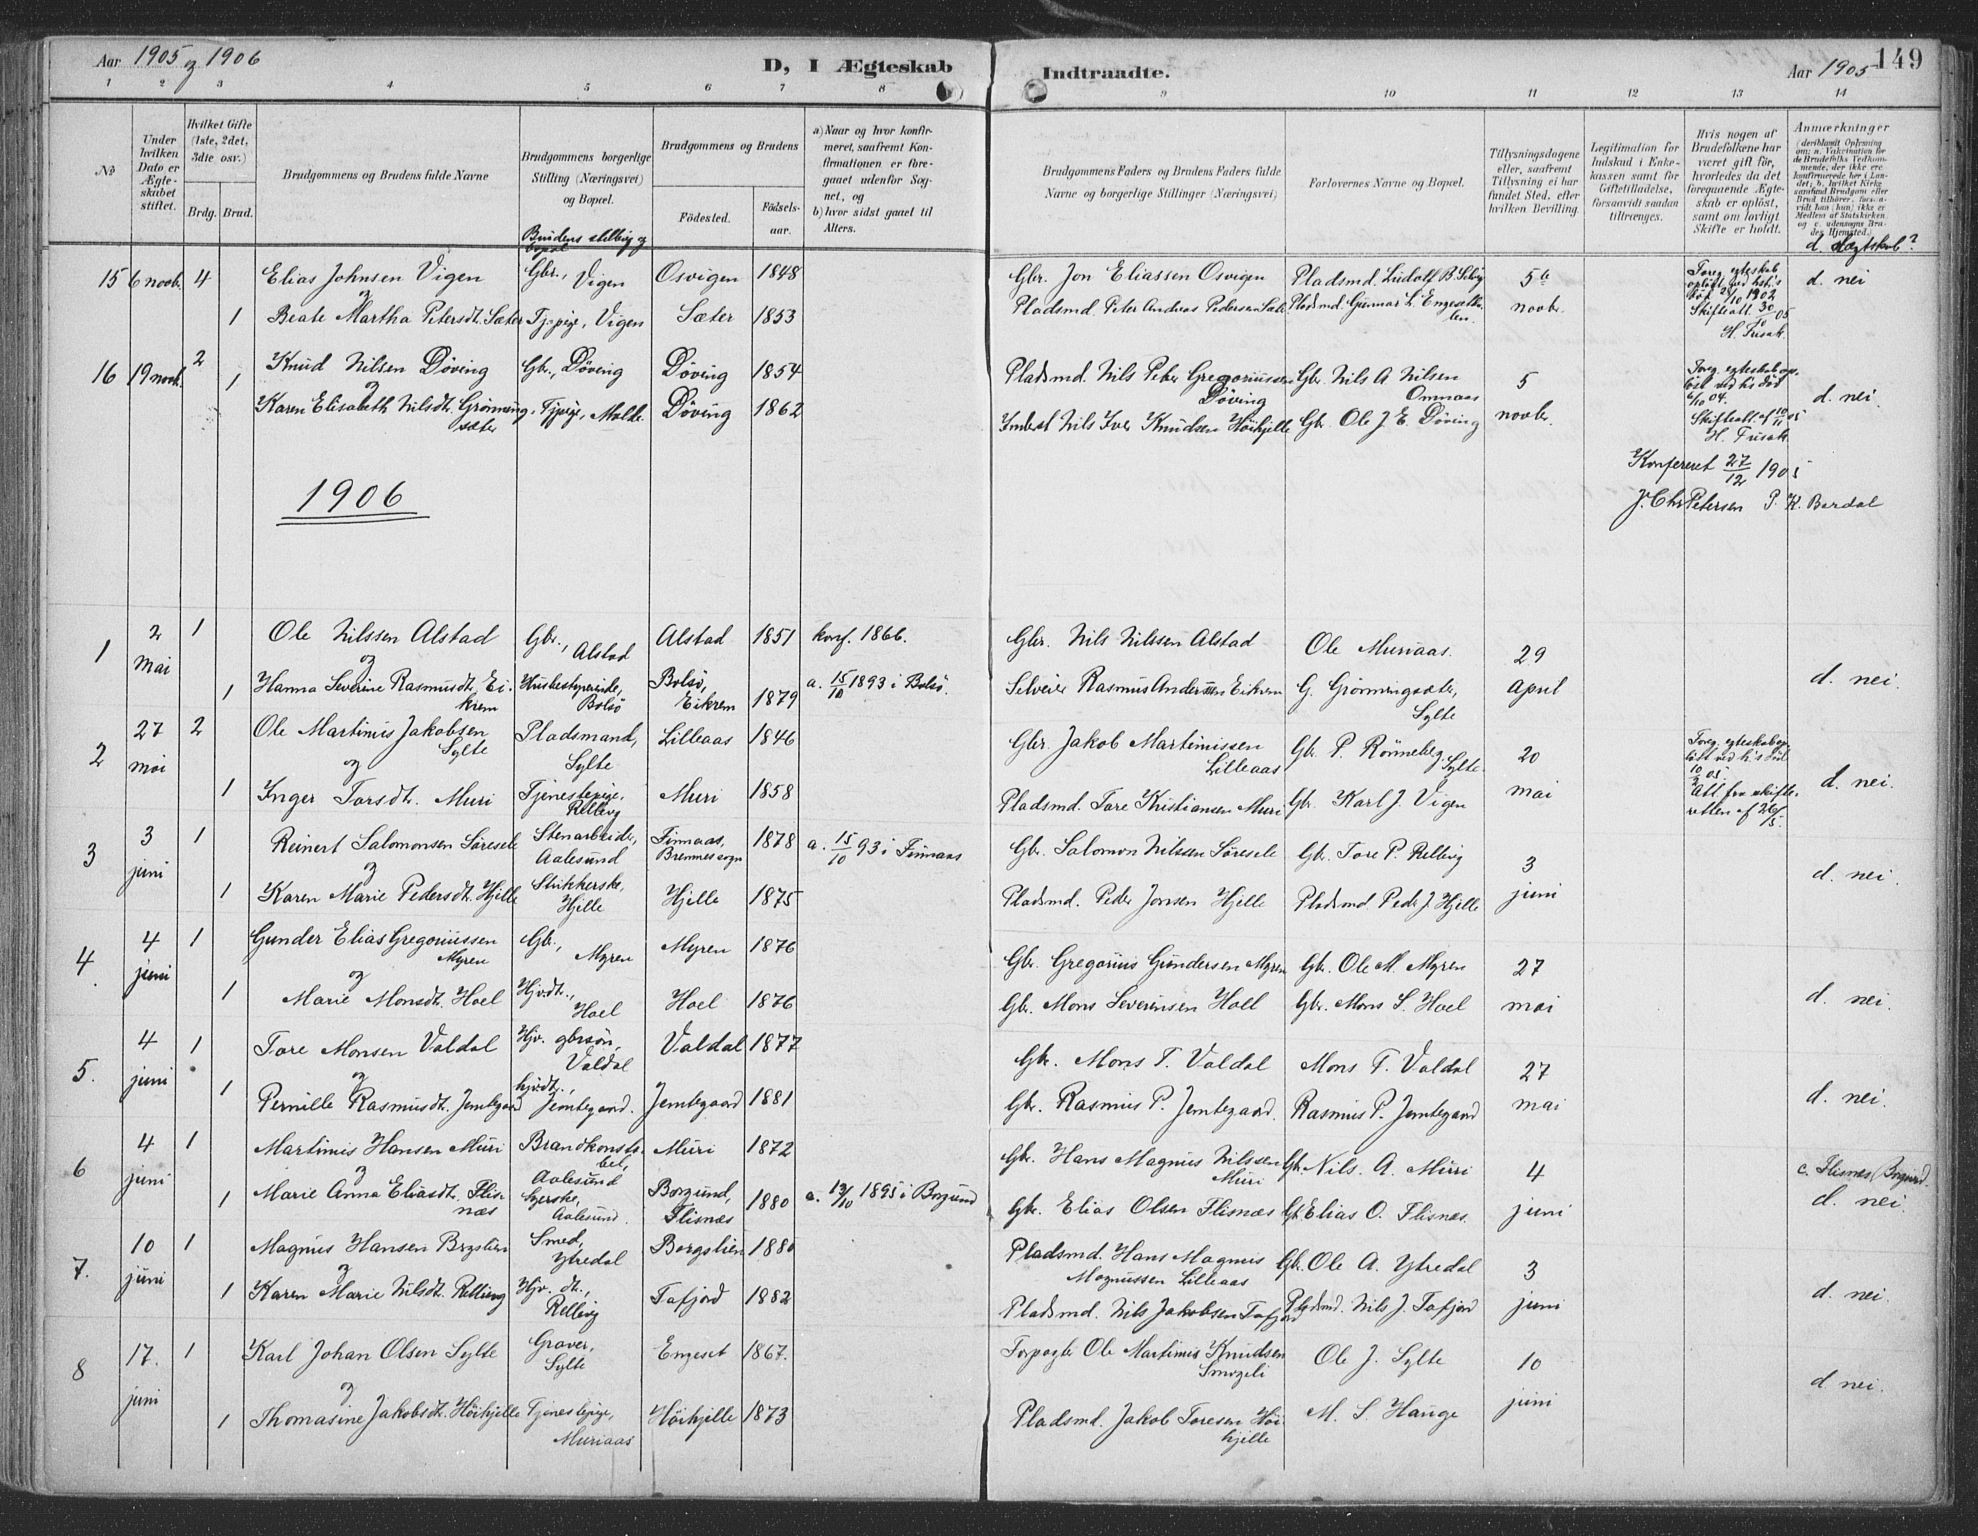 Aar 1905 og 1906
D, I Ægteskab Indtraadte.
Aar 1905
149
1 2 3 4 5 6 7 8 9 10 11 12 13 14
No
Under hvilken Dato er Ægteskabet stiftet.
Hvilket Gifte (1ste, 2det, 3die osv.)
Brdg. Brud.
Brudgommens og Brudens fulde Navne
Brudgommens borgerlige Stilling (Næringsvei) og Bopæl.
Brudens stilling og bopæl
Brudgommens og Brudens
Fødested.
Fødselsaar.
a) Naar og hvor konfirmeret, saafremt Konfirmationen er foregaaet udenfor Sognet, og
b) hvor sidst gaaet til Alters.
Brudgommens Faders og Brudens Faders fulde Navne og borgerlige Stillinger (Næringsvei)
Forlovernes Navne og Bopæl.
Tillysningsdagene eller, saafremt Tillysning ei har fundet Sted, efter hvilken Bevilling.
Legitimation for Indskud i Enkekassen samt for Giftetilladelse, forsaavidt saadan tiltrænges.
Hvis nogen af Brudefolkene har været gift før, hvorledes da det foregaaende Ægteskab er opløst, samt om lovligt Skifte er holdt.
Anmærkninger
d. slægtskab?
15 6 novb. 4 Elias Johnsen Vigen Gbr., Vigen Osvigen 1848 Gbr. Jon Eliassen Osvigen Pladsmd. Ludolf B. Selvig 5te novbr. d. nei
og
1 Beate Martha Petersdt. Sæter Tjpige, Vigen Sæter 1853 Pladsmd. Peter Andreas Pedersen Sæter Pladsmd. Gunnar L.
Foreg. egteskab opløst ved hst.'s død 28/10 1902
Skifteatt. 30/10 05
H. Frisak
16 19 novb. 2 Knud Nilsen Døving Gbr., Døving Døving 1854 Pladsmd. Nils Peter Gregoriussen Døving Gbr. Nils A. Nilsen Omnaas 5 novbr. d. nei.
og
1 Karen Elisabeth Nilsdt. Grønningsæter Tjpige, Molde Døving 1862 Inderst Nils Iver Knudsen Høihjelle Gbr. Ole J. E. Døving
Foreg. egteskab opløst ved hs død 6/10 04.
Skifteatt. af 10/11 05
H. Frisak
Konfereret 27/12 1905
J. Chr. Petersen P. K. Bardal
1906
1 2 mai 1 Ole Nilssen Alstad Gbr., Alstad Alstad 1851 konf. 1866. Gbr. Nils Nilssen Alstad Ole Muriaas. 29 april d. nei.
og
1 Hanna Severine Rasmusdt. Eikrem Husbestyrerinde, Bolsø Bolsø, Eikrem 1879 a. 15/10 1893 i Bolsø. Selveier Rasmus Andersen Eikrem G. Grønningsæter, Sylte
2 27 mai 2 Ole Martinus Jakobsen Sylte Pladsmand, Sylte Lilleaas 1846 Gbr. Jakob Martinussen Lilleaas Gbr. P. Rønneberg Sylte. 20 mai d. nei.
og
1 Inger Torsdt. Muri Tjenestepige, Relling Muri 1858 Pladsmd. Tore Kristiansen Muri Gbr. Karl J. Vigen
Foreg. egteskab opløst ved h's død
Att fra skifteretten af 26/5.
3 3 juni 1 Reinert Salomonsen Søresele Stenarbeider, Aalesund Finnaas, Bremnes sogn 1878 a. 15/10 93 i Finnaas Gbr. Salomon Nilssen Søresele Gbr. Tore P. Relling 3 juni d. nei.
og
1 Karen Marie Pedersdt. Hjelle Strikkerske, Hjelle Hjelle 1875 Pladsmd. Peder Jonsen Hjelle Pladsmd Peder J. Hjelle
4 4 juni 1 Gunder Elias Gregoriussen Myren Gbr., Myren Myren 1876 Gbr. Gregorius Gundersen Myren Gbr. Ole M. Myren 27 mai d. nei.
og
1 Marie Monsdt. Hoel Hjvdt., Hoel Hoel 1876 Gbr. Mons Severinsen Hoel Gbr. Mons S. Hoel
5. 4 juni 1 Tore Monsen Valdal Hjv. gbrsøn, Valdal Valdal 1877 Gbr. Mons T. Valdal Mons T. Valdal 27 mai d. nei.
og
1 Pernille Rasmusdt. Jemtegaard hjvdt., Jemtegaard. Jemtegaard 1881 Gbr. Rasmus P. Jemtegaard. Rasmus P. Jemtegaard
6 4 juni 1 Martinus Hansen Muri Brandkonstabel, Aalesund Muri 1872 Gbr. Hans Magnus Nilssen Muri Gbr. Nils. A. Muri 4 juni c. Flisnæs (Borgund. d. nei.
og
1 Marie Anna Eliasdt. Flisnæs Syerske, Aalesund. Borgund, Flisnæs 1880 a. 13/10 1895 i Borgund Gbr. Elias Olsen Flisnæs Gbr. Elias O. Flisnæs.
7. 10 juni 1 Magnus Hansen Borgslien Smed, Ytredal Borgslien 1880 Pladsmd. Hans Magnus Magnussen Lilleaas Gbr. Ole A. Ytredal 3 juni d. nei.
og
1 Karen Marie Nilsdt. Relling Hjv. dt., Relling Tafjord 1882 Pladsmd. Nils Jakobsen Tafjord Pladsmd. Nils J. Tafjord
8 17. juni 1 Karl Johan Olsen Sylte Graver, Sylte Engeset 1867. Forpagter Ole Martinus Knudsen Smogeli Ole J. Sylte 10 juni d nei.
og
1 Thomasine Jakobsdt. Høihjelle Tjenestepige, Muriaas Høihjelle 1873 Pladsmd. Jakob Toresen Høihjelle M. S. Hauge